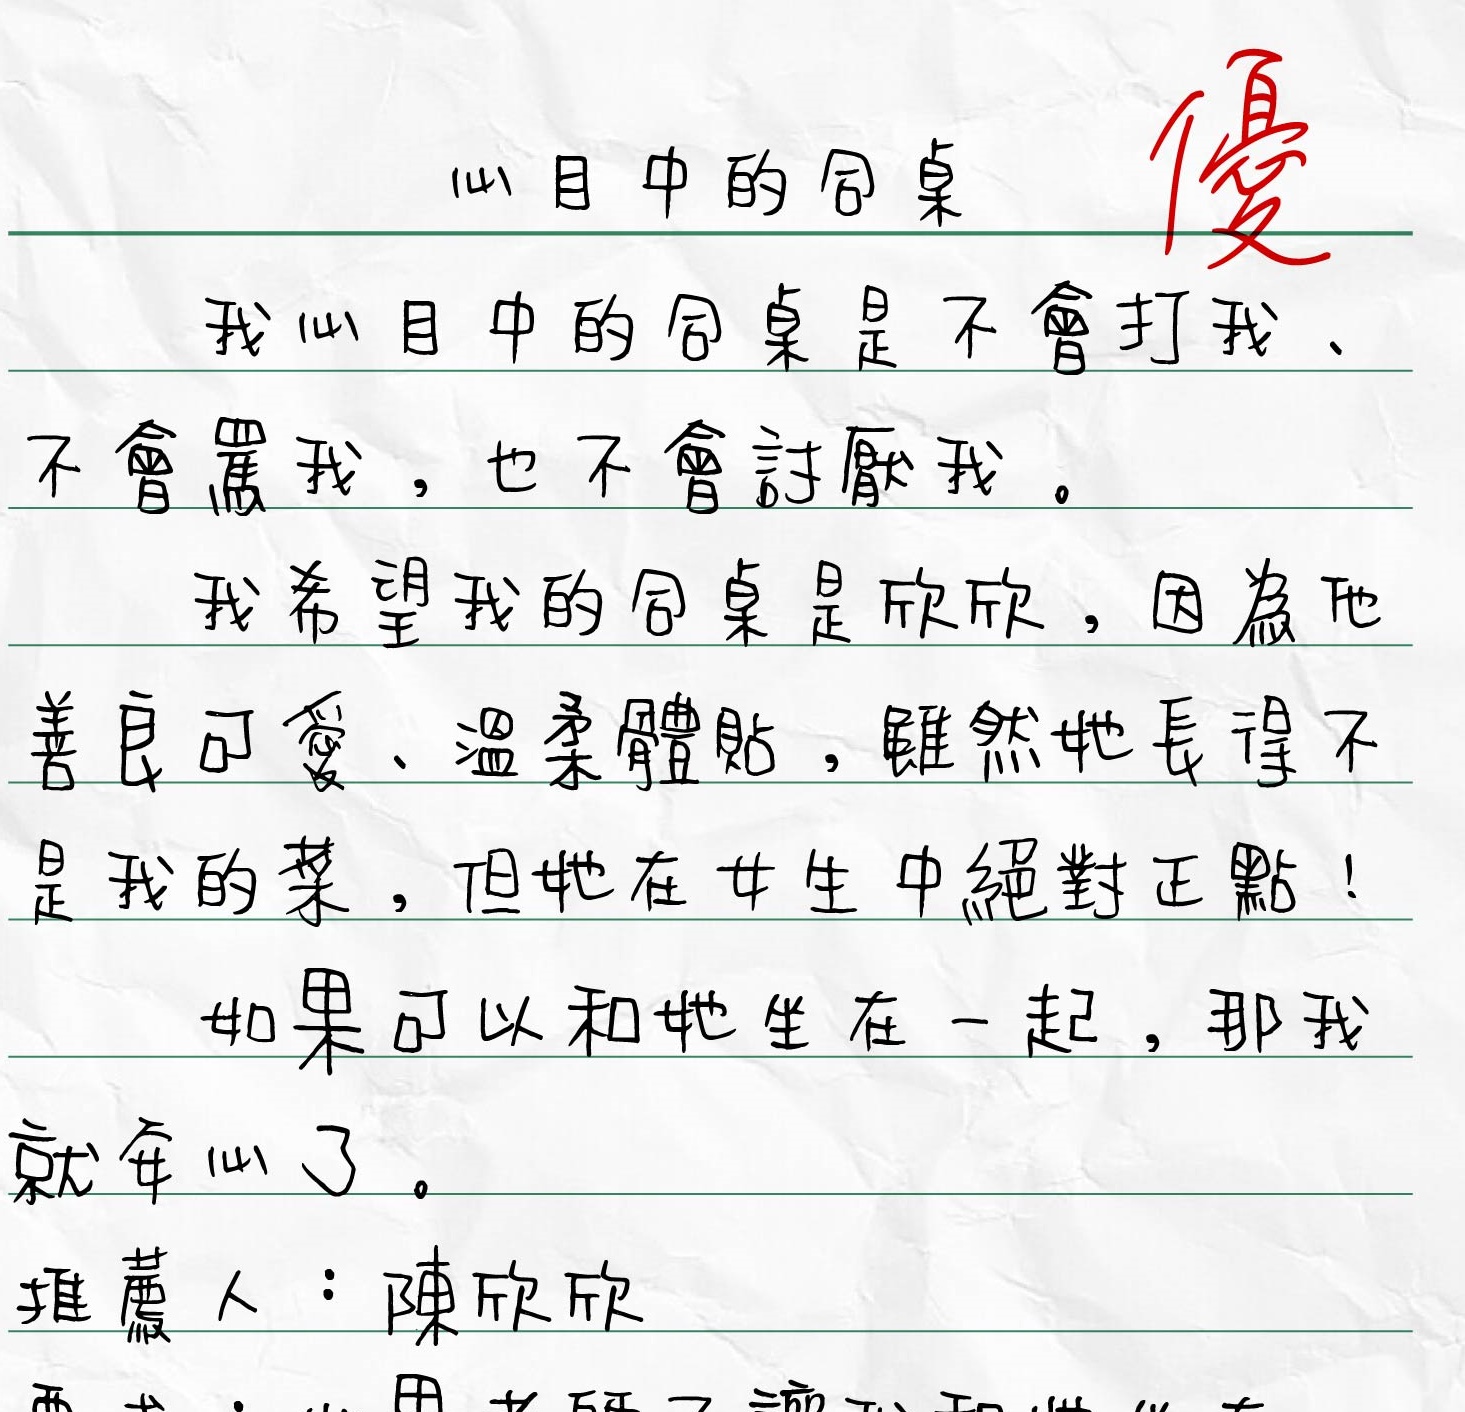 優
心目中的同桌
我心目中的同桌是不會打我、
不會罵我，也不會討厭我。
我希望我的同桌是欣欣，因為他
善良可愛、溫柔體貼，雖然她長得不
是我的菜，但她在女生中絕對正點！
如果可以和她坐在一起，那我
就安心了。
推薦人：陳欣欣